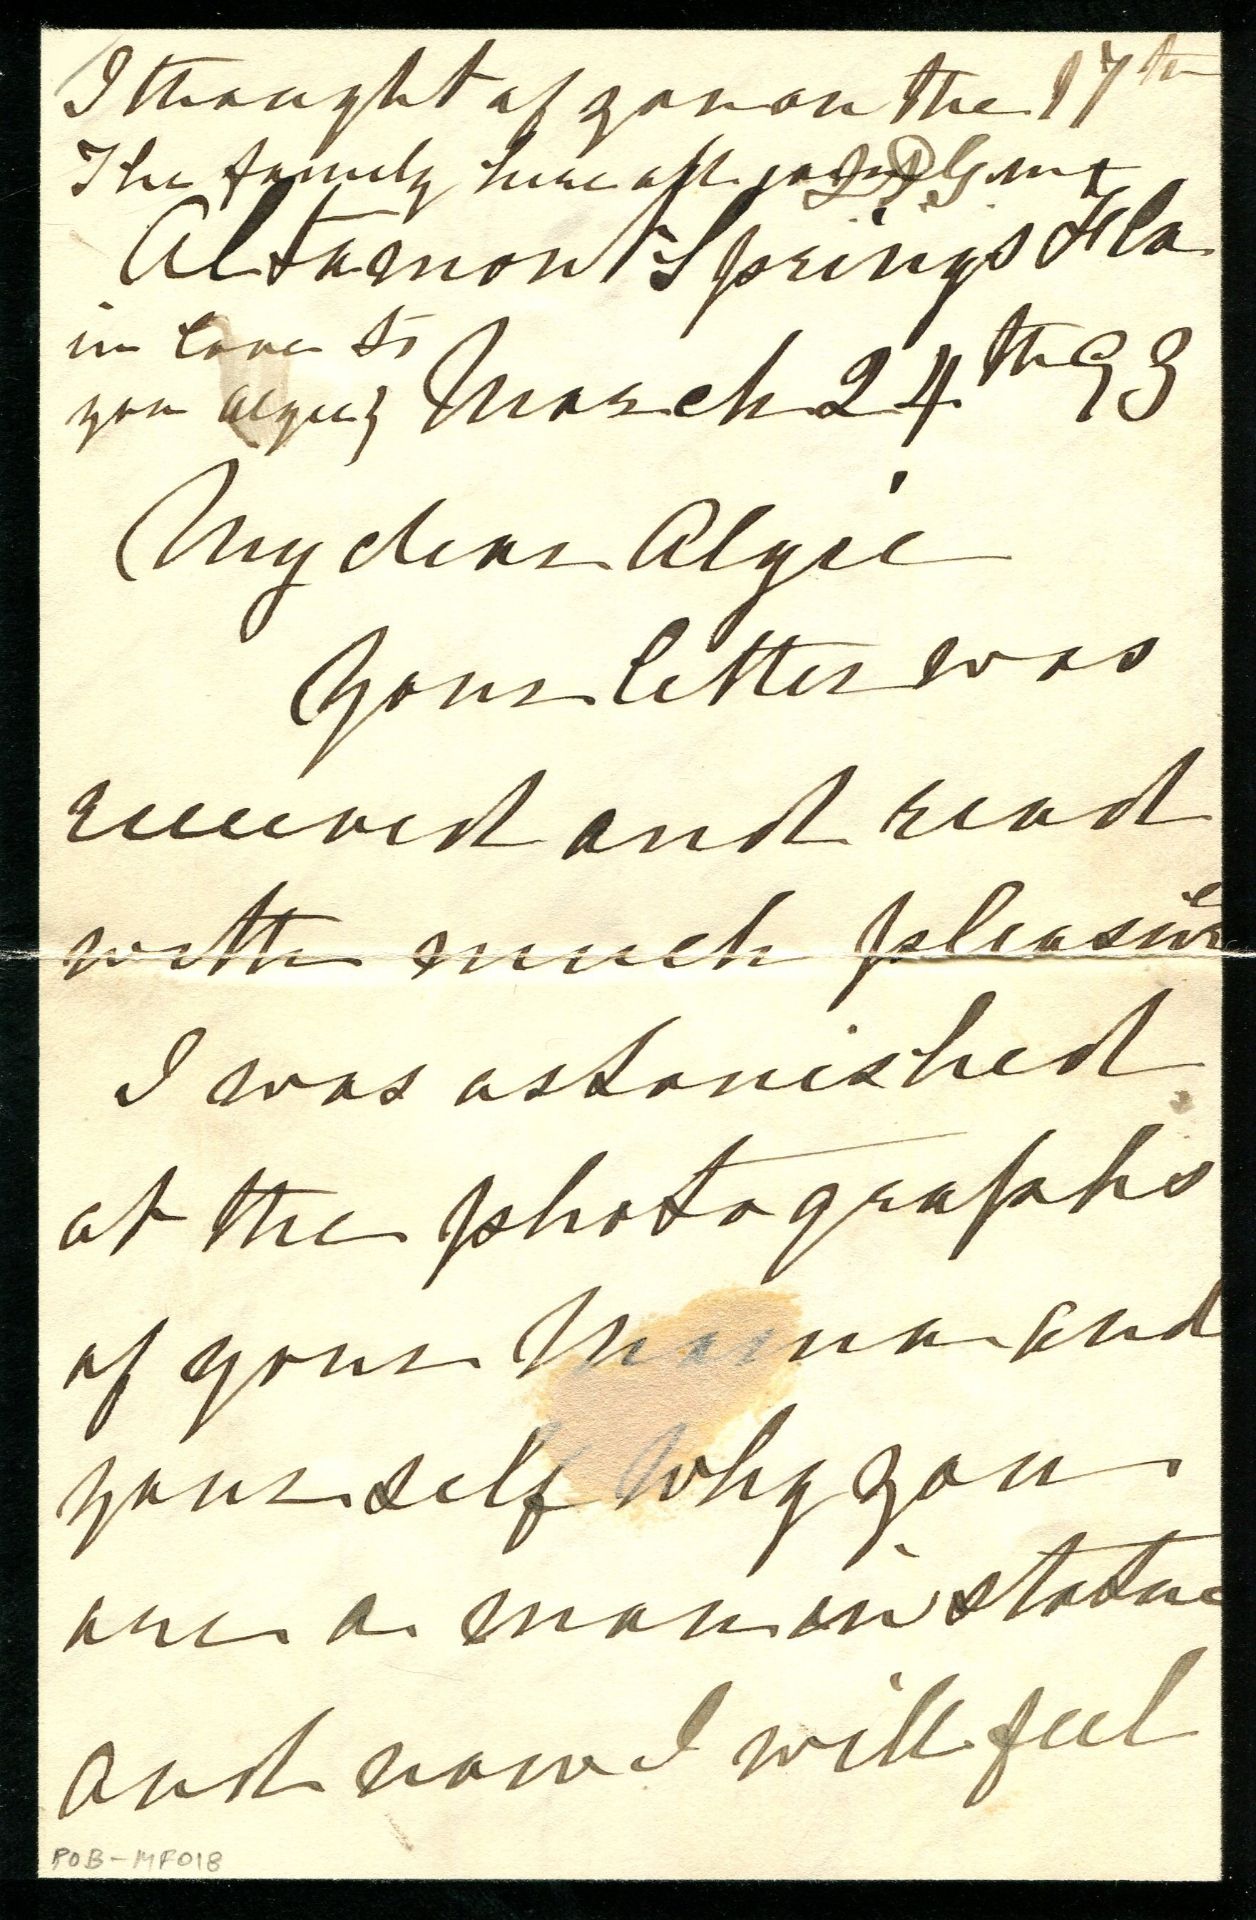 I thought of you on the 17th
The family here all join
Altamont Springs Fla
in love to
you Algie} March 24th 93
My dear Algie
Your letter was
received and read
with much pleasure
I was astonished
at the photographs
of your Mama and
yourself Why you
are a man in statue
and now I will feel
POB-MF018